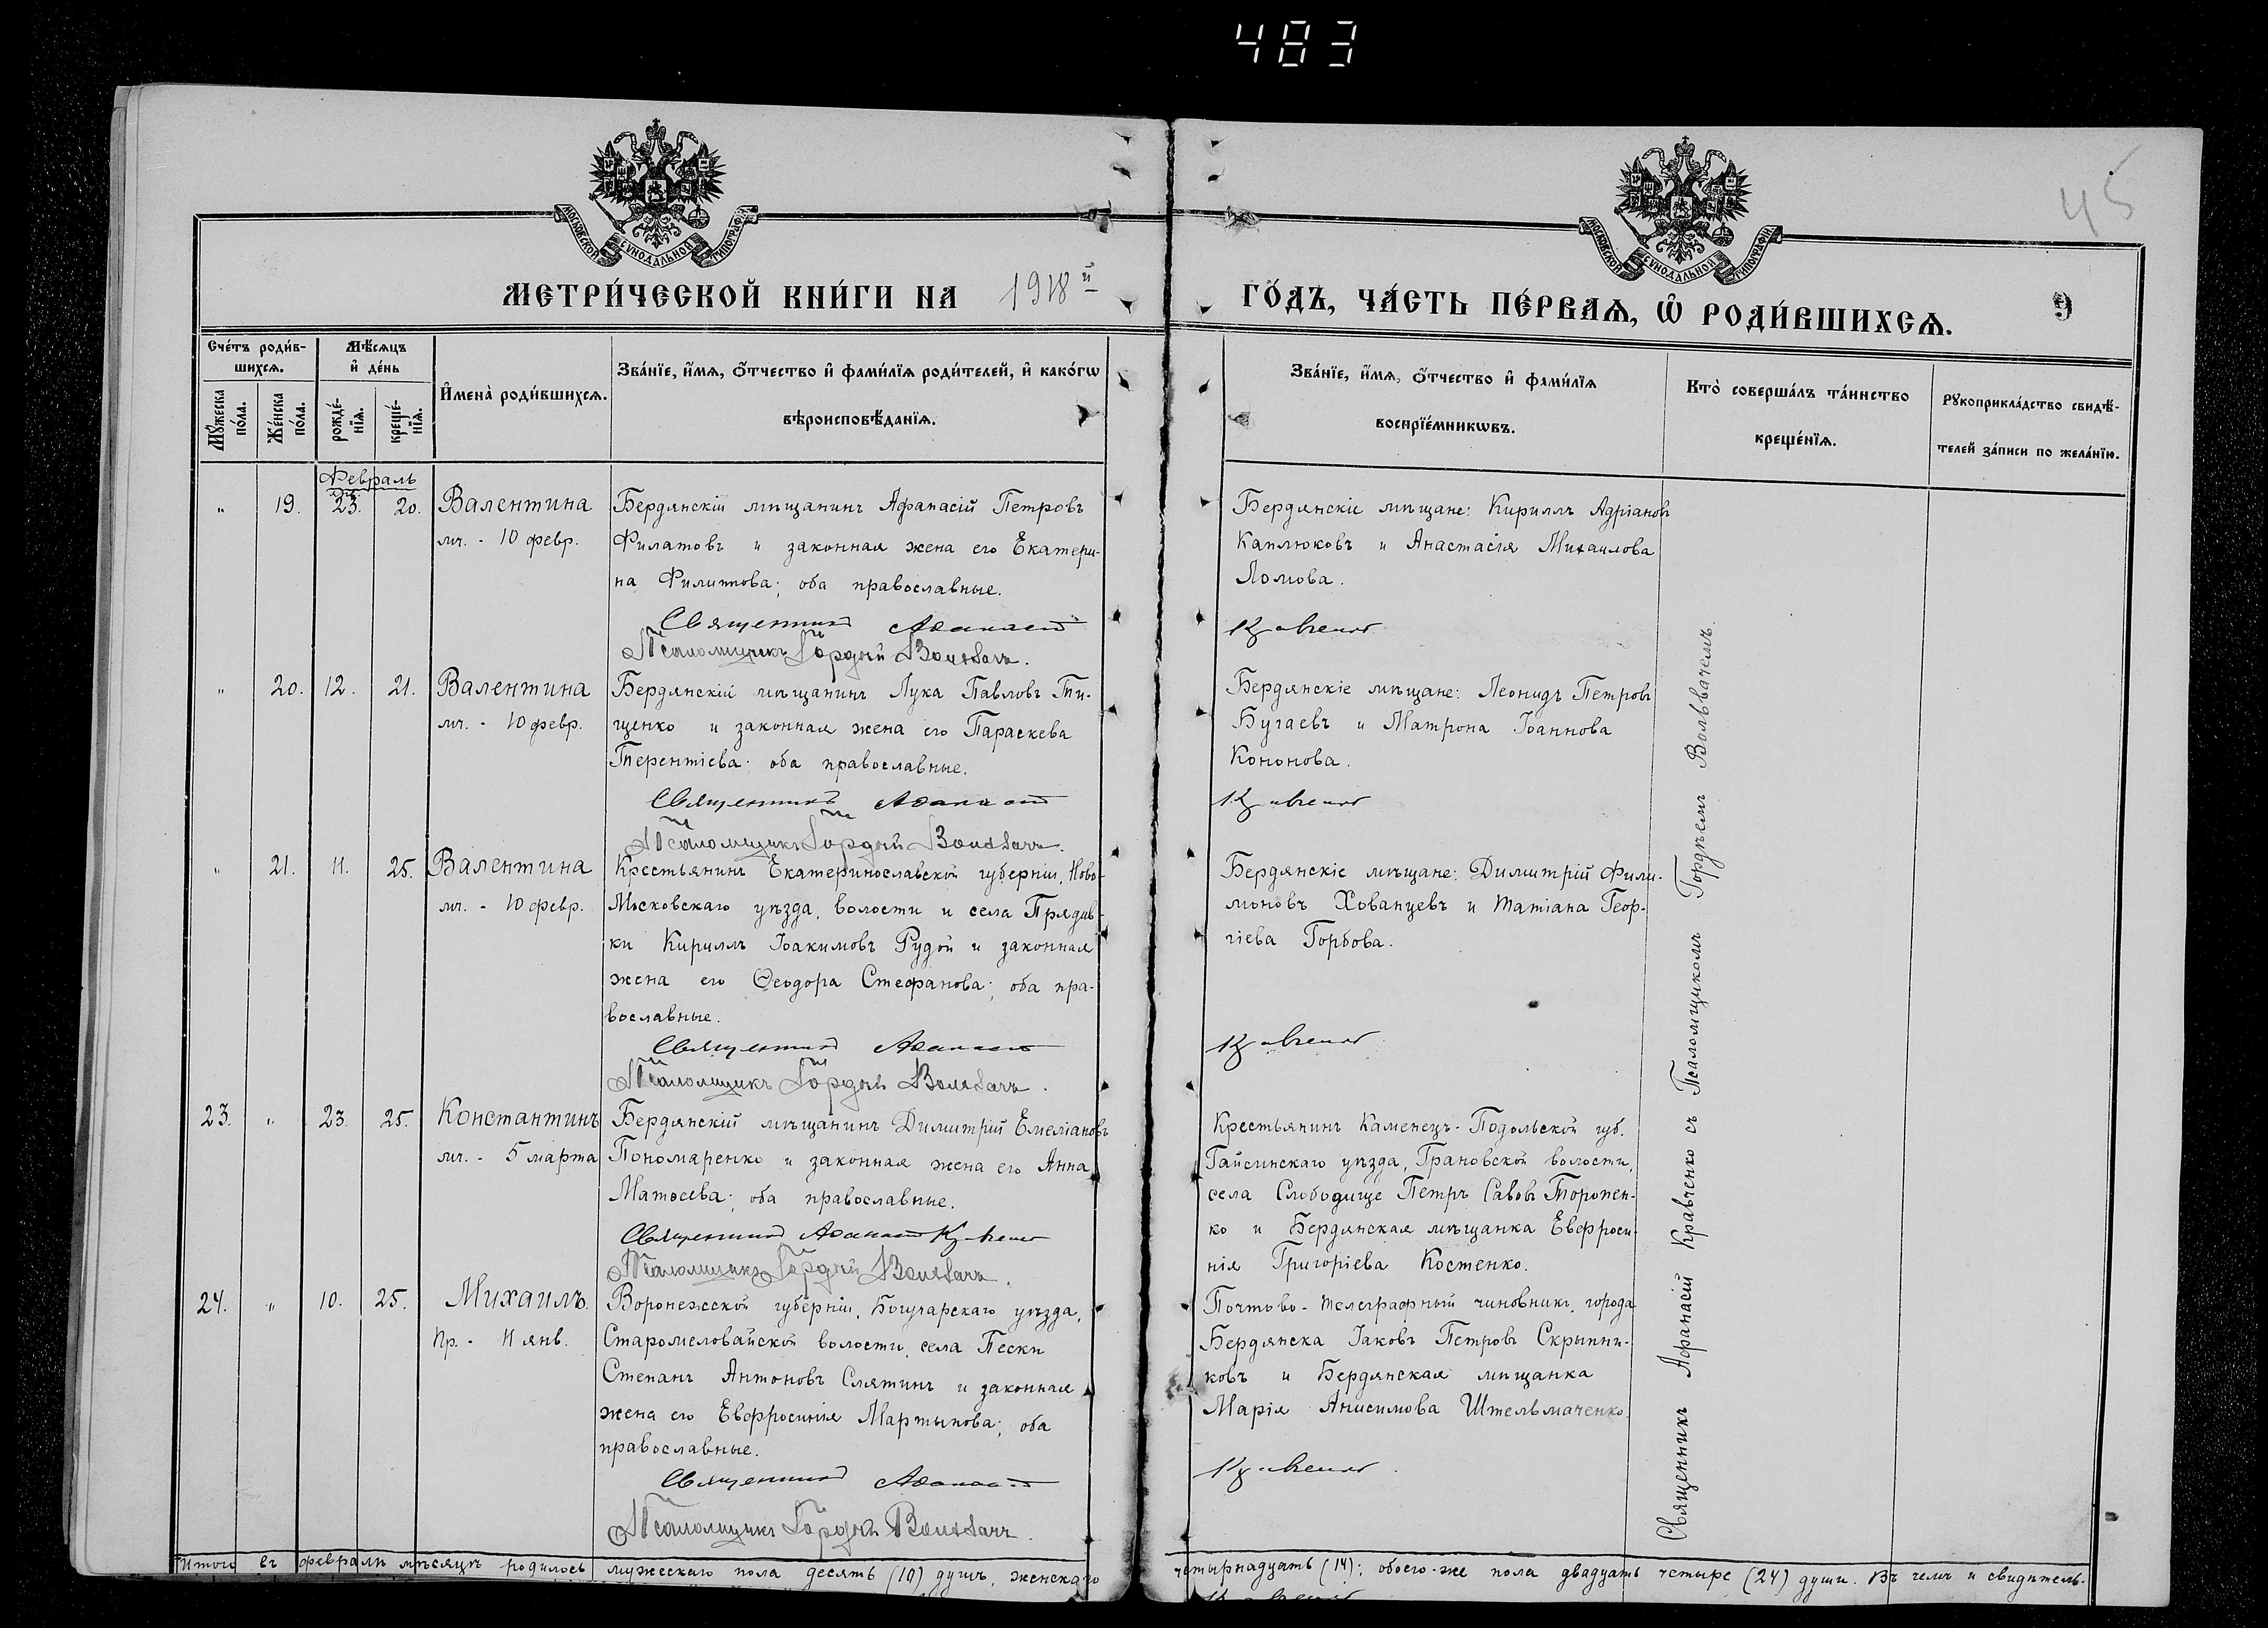 483
45
МОСКОВСКОЙ СѴНОДАЛЬНОЙ ТИПОГРАФІИ
МОСКОВСКОЙ СѴНОДАЛЬНОЙ ТИПОГРАФІИ
МЕТРИ́ЧЕСКОЙ КНИ́ГИ НА 1918й
ГО́ДЪ, ЧА́СТЬ ПЕ́РВАѦ, Ѡ҆ РОДИ́ВШИХСѦ.
9
Сче́тъ роди́в-
шихсѧ.
Мꙋ́жеска по́ла.
Же́нска по́ла.
Мѣ́сѧцъ
и҆ де́нь
рожде́-
нїѧ.
креще́-
нїѧ.
И҆мена̀ роди́вшихсѧ.
Зва́нїе, и҆́мѧ, ѻ҆́тчество и҆ фами́лїѧ роди́телей, и҆ како́гѡ
вѣроисповѣ́данїѧ.
Зва́нїе, и҆́мѧ, ѻ҆́тчество и҆ фами́лїѧ
воспрїе́мникѡвъ.
Кто̀ соверша́лъ та́инство
креще́нїѧ.
Рꙋкоприкла́дство свидѣ́-
телей за́писи по жела́нїю.
Февраль
" 19. 23. 20. Валентина
мч. - 10 февр.
Бердянскій мѣщанинъ Афанасій Петровъ
Филатовъ и законная жена его Екатери-
на Филиппова; оба православные.
Священникъ Афанасій
Псаломщикъ Гордѣй Вольвачъ.
Бердянскіе мѣщане: Кириллъ Адріановъ
Каплюковъ и Анастасія Михаилова
Ломова.
Кравченко
" 20. 12. 21. Валентина
мч. - 10 февр.
Бердянскій мѣщанинъ Лука Павловъ Ти-
щенко и законная жена его Параскева
Терентіева; оба православные.
Священникъ Афанасій
Псаломщикъ Гордѣй Вольвачъ.
Бердянскіе мѣщане: Леонидъ Петровъ
Бугаевъ и Матрона Іоаннова
Кононова.
Кравченко
" 21. 11. 25. Валентина
мч. - 10 февр.
Крестьянинъ Екатеринославской губерніи, Ново-
Московскаго уѣзда, волости и села Прядив-
ки Кириллъ Іоакимовъ Рудой и законная
жена его Ѳеодора Стефанова; оба пра-
вославные.
Священникъ Афанасій
Псаломщикъ Гордѣй Вольвачъ.
Бердянскіе мѣщане: Димитрій Фили-
моновъ Хованцевъ и Татіана Геор-
гіева Горбова.
Кравченко
23. " 23. 25. Константинъ
мч. - 5 марта
Бердянскій мѣщанинъ Димитрій Емеліановъ
Пономаренко и законная жена его Анна
Матѳеева; оба православные.
Священникъ Афанасій Кравченко
Псаломщикъ Гордѣй Вольвачъ.
Крестьянинъ Каменецъ-Подольской губ.
Гайсинскаго уѣзда, Грановской волости,
села Слободище Петръ Савовъ Торопен-
ко и Бердянская мѣщанка Евфроси-
нія Григоріева Костенко.
24. " 10. 25. Михаилъ.
Пр. - 11 янв.
Воронежской губерніи, Богучарскаго уѣзда,
Старомеловайской волости, села Пески
Степанъ Антоновъ Слятинъ и законная
жена его Евфросинія Мартынова; оба
православные.
Священникъ Афанасій
Псаломщикъ Гордѣй Вольвачъ.
Почтово-телеграфный чиновникъ, города
Бердянска Іаковъ Петровъ Скрыпни-
ковъ и Бердянская мѣщанка
Марія Анисимова Штельмаченко.
Кравченко
Священникъ Афанасій Кравченко съ Псаломщикомъ Гордѣемъ Вольвачемъ.
Итого въ февралѣ мѣсяцѣ родилось мужескаго пола десять (10) душъ, женскаго
четырнадцать (14); обоего-же пола двадцать четыре (24) души. Въ чемъ и свидѣтель-